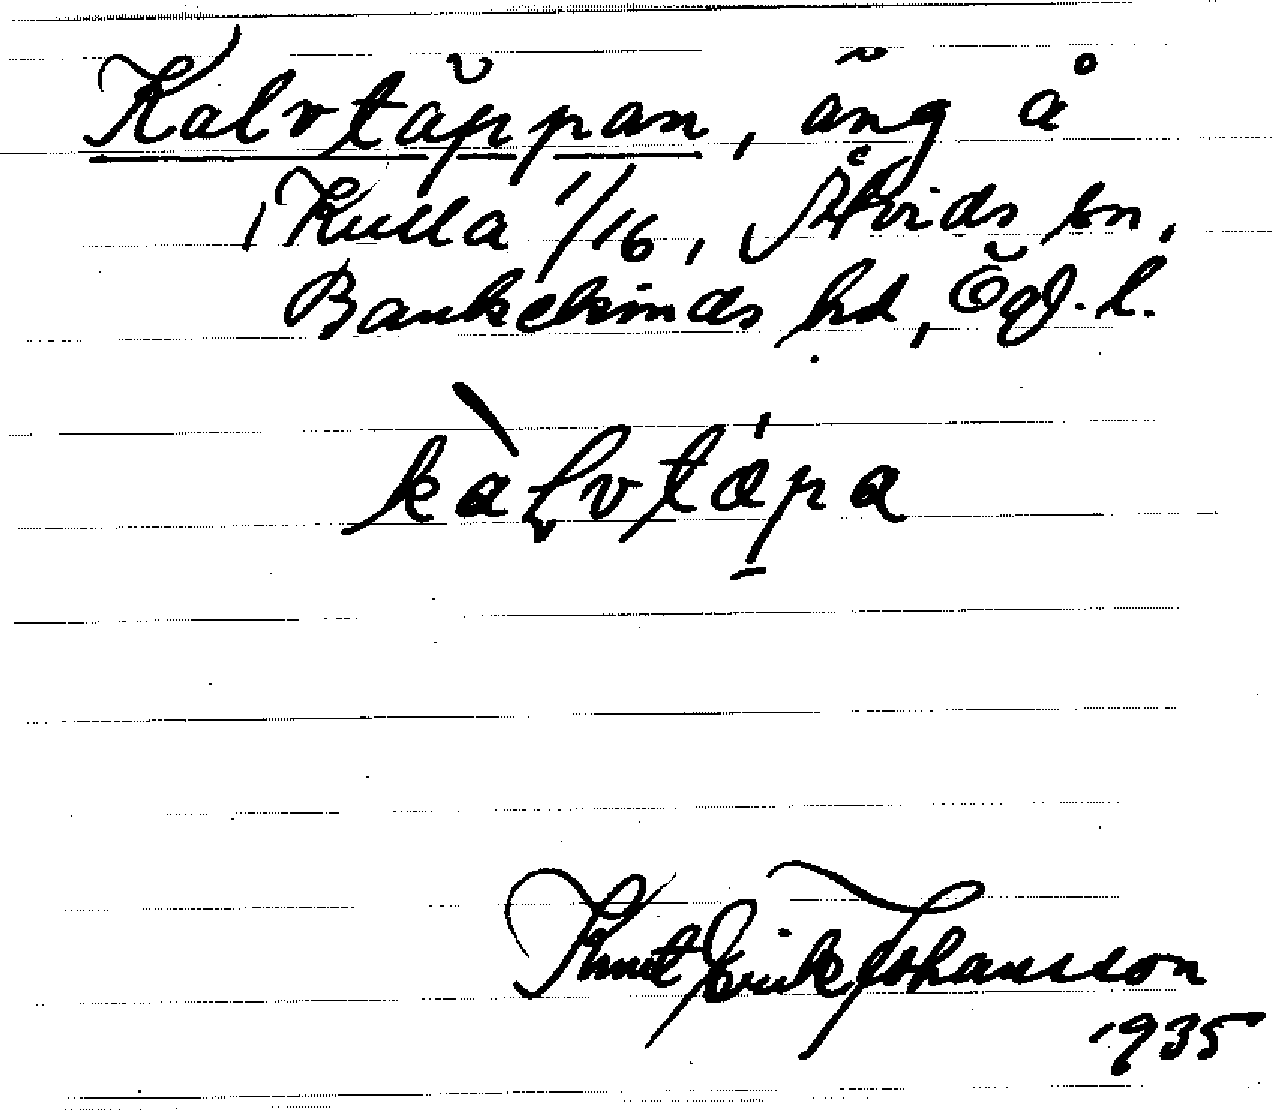 Kalvtäppan, äng å
Kulla 1/16, Åtvids sn,
Bankekinds hd, Ögl. l.
kàlvtǽpa
Knut Erik Johansson
1935